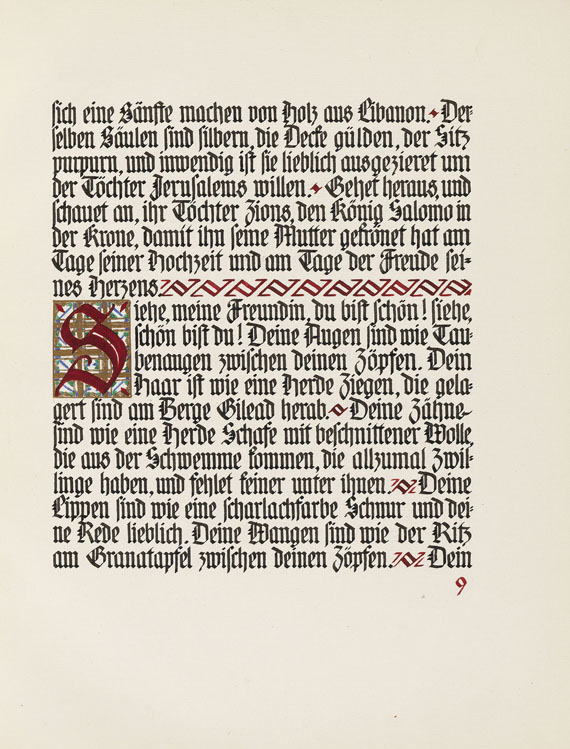 sich eine Sänfte machen von Holz aus Libanon. Der-
selben Säulen sind silbern, die Decke gülden, der Sitz
purpurn, und inwendig ist sie lieblich ausgezieret um
der Töchter Jerusalems willen. Gehet heraus, und
schauet an, ihr Töchter Zions, den König Salomo in
der Krone, damit ihn seine Mutter gekrönet hat am
Tage seiner Hochzeit und am Tage der Freude sei-
nes Herzens.
Siehe, meine Freundin, du bist schön! siehe,
schön bist du! Deine Augen sind wie Tau-
benaugen zwischen deinen Zöpfen. Dein
Haar ist wie eine Herde Ziegen, die gela-
gert sind am Berge Gilead herab. Deine Zähne
sind wie eine Herde Schafe mit beschnittener Wolle,
die aus der Schwemme kommen, die allzumal Zwil-
linge haben, und fehlet keiner unter ihnen. Deine
Lippen sind wie eine scharlachfarbe Schnur und dei-
ne Rede lieblich. Deine Wangen sind wie der Ritz
am Granatapfel zwischen deinen Zöpfen. Dein
9